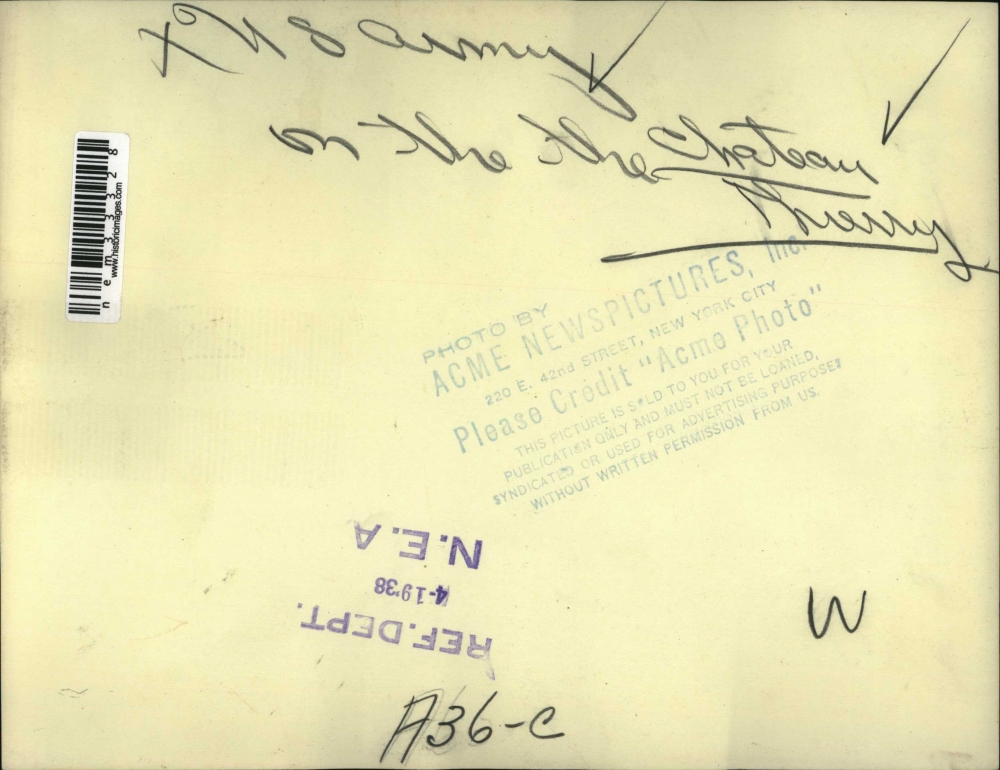 X U S Army
on the the Chateau
Thierry
nem33328
www.historicimages.com
PHOTO BY
ACME NEWSPICTURES, Inc.
220 E. 42nd STREET, NEW YORK CITY
Please Credit "Acme Photo"
THIS PICTURE IS SOLD TO YOU FOR YOUR
PUBLICATION ONLY AND MUST NOT BE LOANED,
SYNDICATED OR USED FOR ADVERTISING PURPOSES
WITHOUT WRITTEN PERMISSION FROM US.
REF. DEPT.
4-19'38
N.E.A
W
A36-C